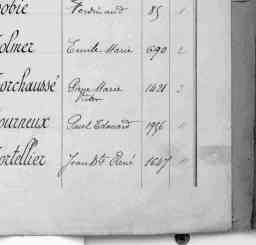 obie Ferdinand 85 1
olmer Emile Marie 690 2
orchaussé Pierre Marie 1421 2
Victor
ourneux Paul Edouard 1956 "
ortellier Jean Bte René 1647 "